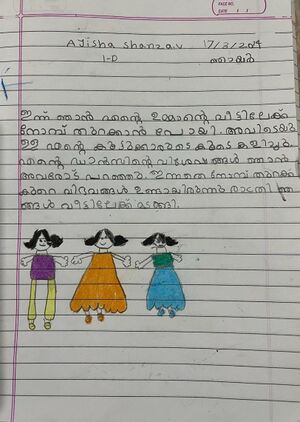 PAGE NO.
DATE
Ajisha shanzav 17/3/2024
1-D ഞായർ
ഇന്ന് ഞാൻ എന്റെ ഉമ്മാന്റെ വീട്ടിലേക്ക്
നോമ്പ് തുറക്കാൻ പോയി. അവിടെയു
ള്ള എന്റെ കൂട്ടുക്കാരുടെ കൂടെ കളിച്ചു.
എന്റെ ഡാൻസിന്റെ വിശേഷങ്ങൾ ഞാൻ
അവരോട് പറഞ്ഞു. ഇന്നത്തെ നോമ്പ് തുറക്ക്
കുറെ വിഭവങ്ങൾ ഉണ്ടായിരുന്നു രാത്രി ഞ
ങ്ങൾ വീട്ടിലേക്ക് മടങ്ങി.